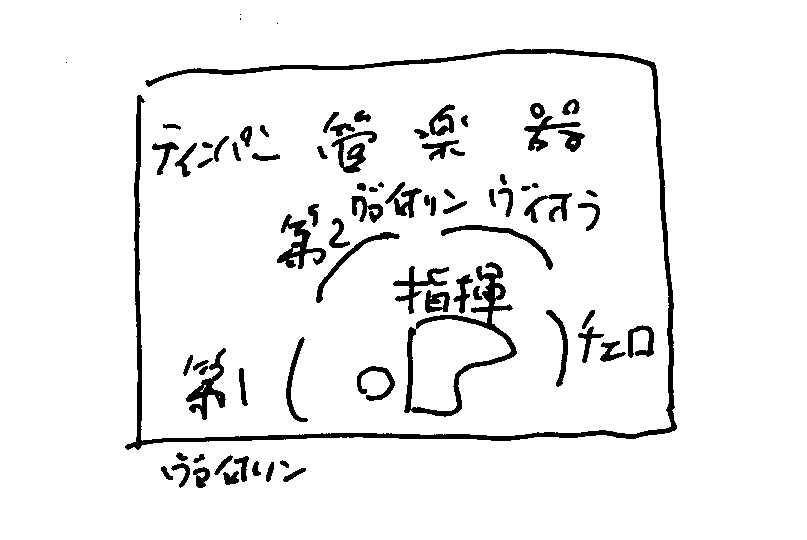 ティンパニー 管楽器
第2 ヴァイオリン ヴィオラ
指揮
第1 チェロ
ヴァイオリン